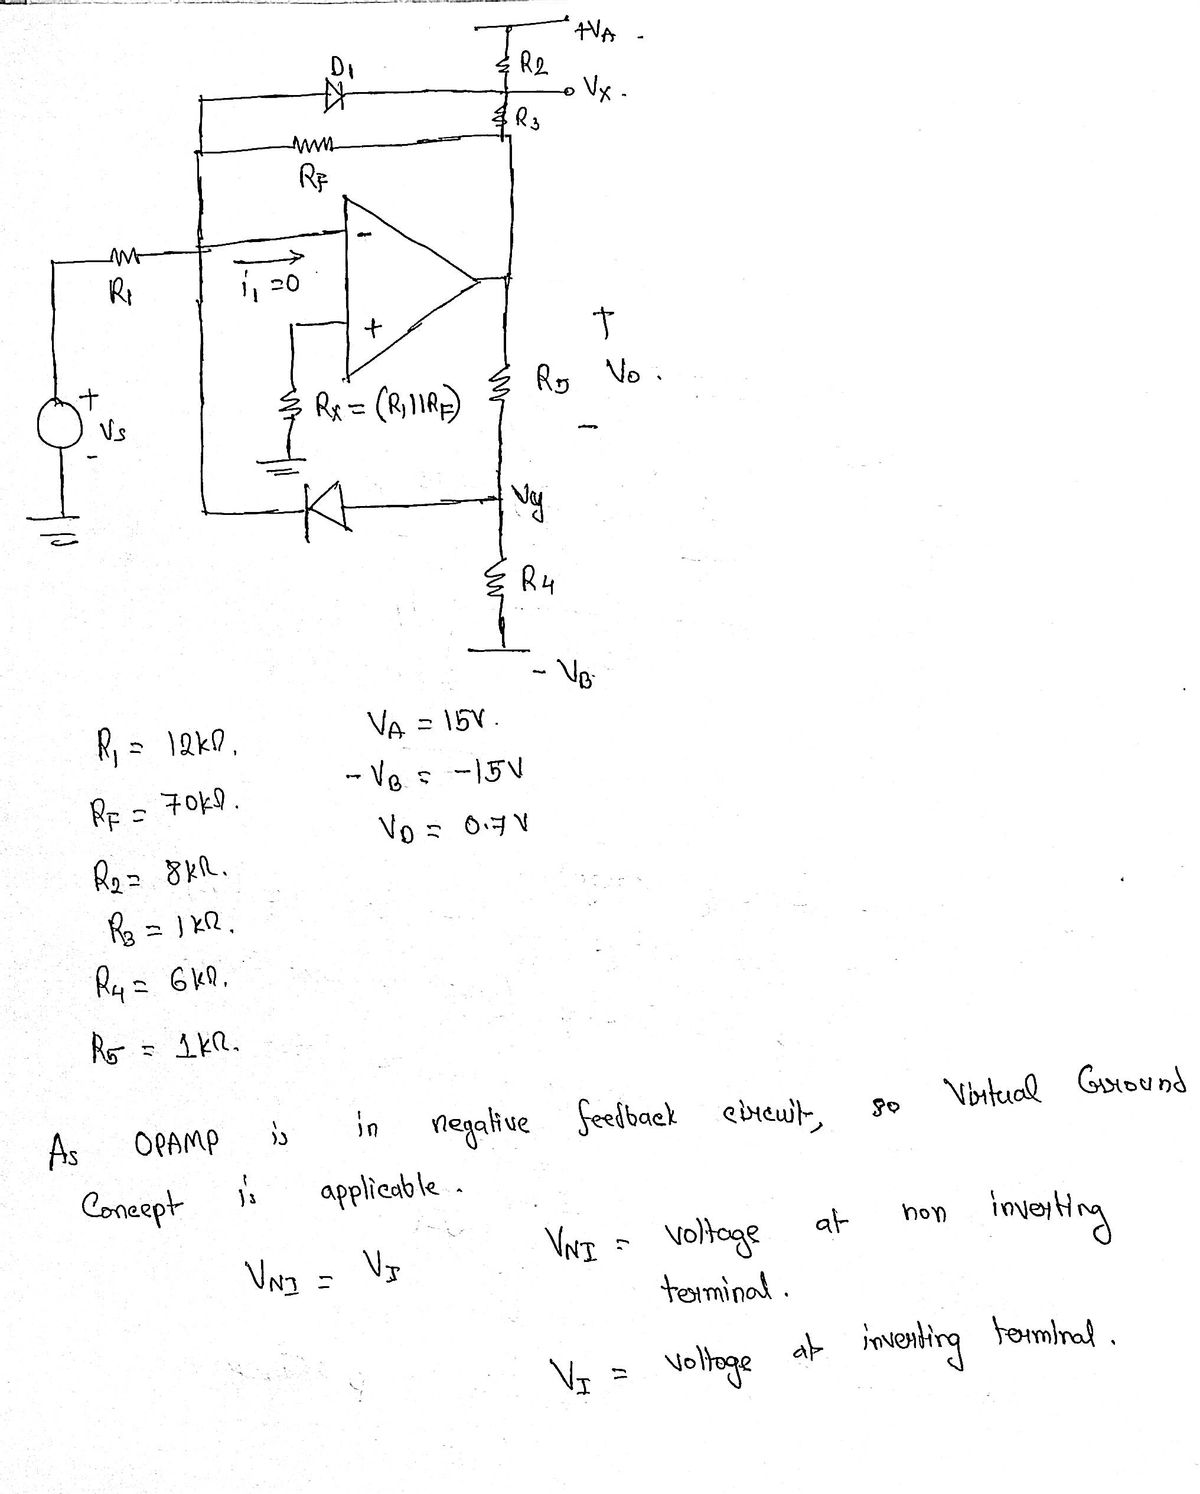 +VA.
R2
D1
Vx.
R3
RF
-
R1
i1 =0
+
+
Vs
-
Rx = (R1||RF)
R5
+
Vo.
-
Vy
R4
- VB
R1 = 12kΩ.
VA = 15V.
RF = 70kΩ.
-VB = -15V
VD = 0.7V
R2 = 8kΩ.
R3 = 1kΩ.
R4 = 6kΩ.
R5 = 1kΩ.
As OPAMP is in negative feedback circuit, so Virtual Ground
Concept is applicable.
VNI = VI
VNI = voltage at non inverting
terminal.
VI = voltage at inverting terminal.